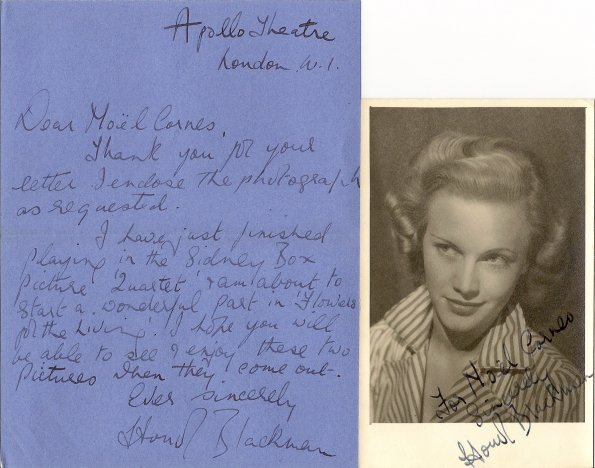 Apollo Theatre
London. W.1.
Dear Noël Cornes,
Thank you for your
letter I enclose the photograph
as requested.
I have just finished
playing in the Sidney Box
picture 'Quartet' & am about to
start a wonderful part in 'Flowers
for the Living'. I hope you will
be able to see & enjoy these two
pictures when they come out.
Ever sincerely
Honor Blackman
For Noël Cornes
Sincerely
Honor Blackman